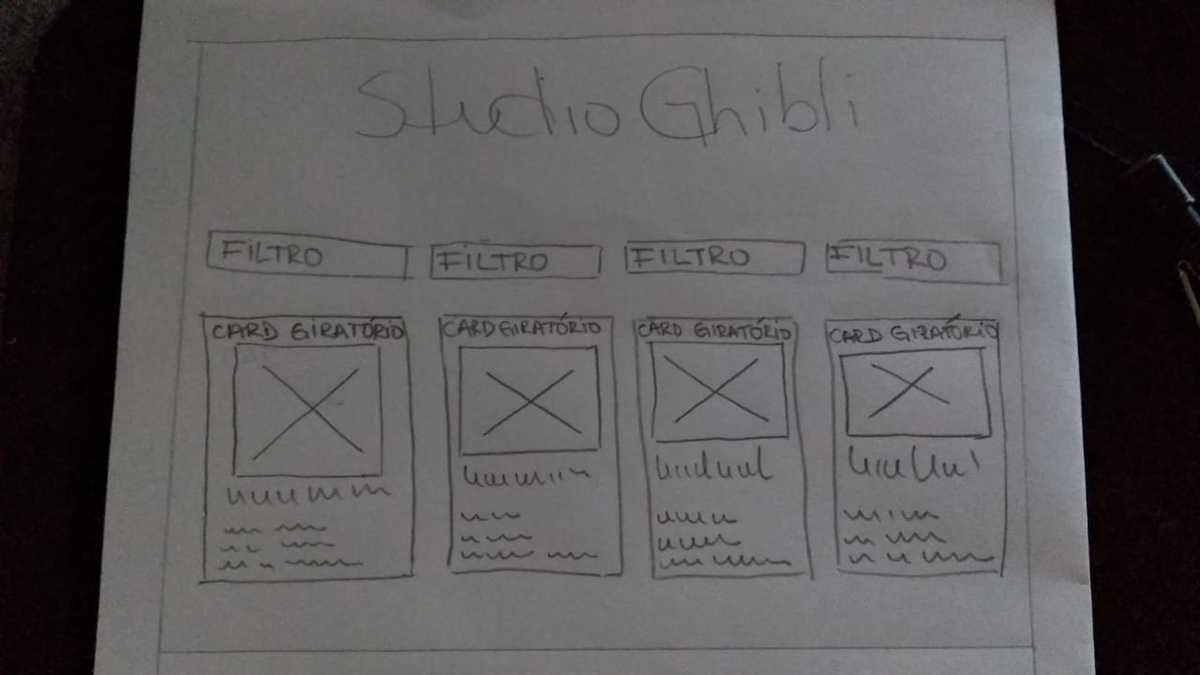 Studio Ghibli
FILTRO FILTRO FILTRO FILTRO
CARD GIRATÓRIO CARD GIRATÓRIO CARD GIRATÓRIO CARD GIRATÓRIO